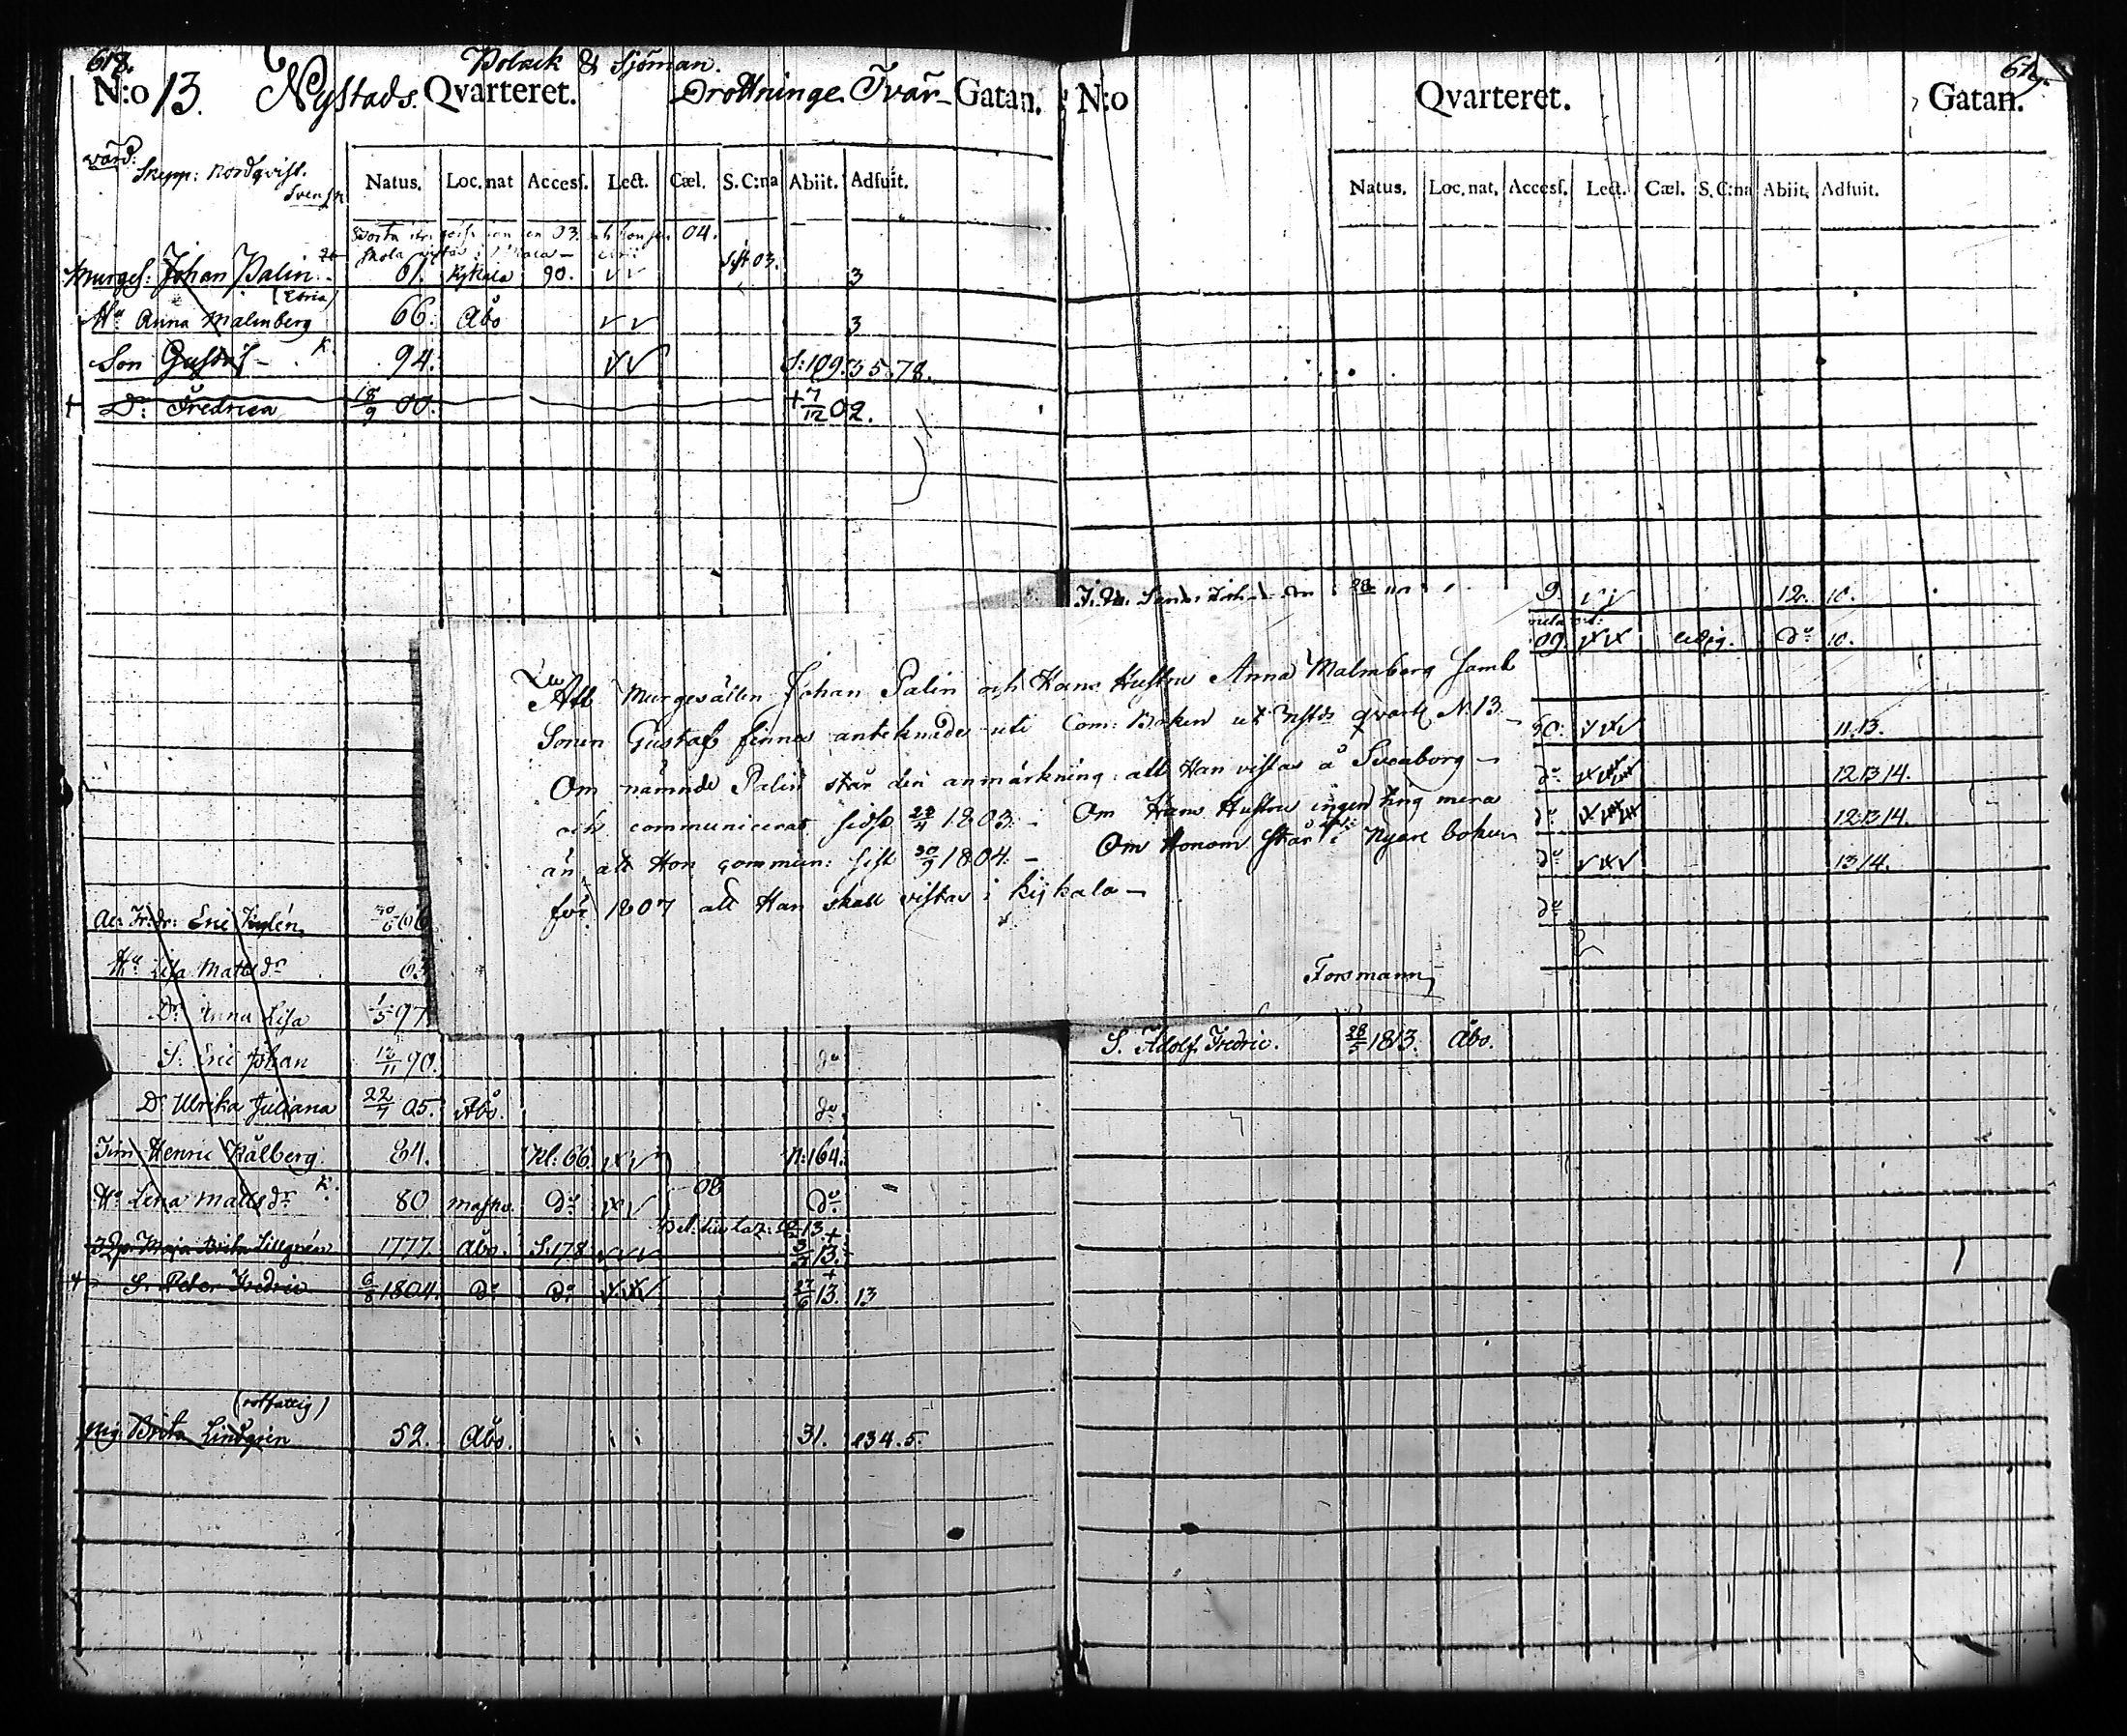 618.
Polack & Sjöman.
N:o 13. Nystads Qvarteret. Drottninge Tvär- Gatan.
värd:
Skepp: Nordqvist.
Natus. Loc. nat Access. Lect. Cæl. S. C:na Abiit. Adfuit.
03. 04.
Murges: Johan Palin 61. Kijkala 90. v v sist 03. 3
Hu Anna Malmberg 66. Åbo v v 3
Son Gustaf - K. 94. v v S:109. 3 5. 78.
+ Dr: Fredrica 18/9 00. + 7/12 02.
Eric 30/6 66
Hu Lisa Matts dr 63
Dr: Anna Lisa 1/5 97
S: Eric Johan 12/11 90. do
Dr Ulrika Juliana 22/7 05. Åbo. do
Tim Henric Kålberg 84. Kl: 66 v v N:164.
Hu Lena Matts dr K. 80 Masko. Do v v 08 Do
Maja Lillgrén 1777. Åbo. S:178 v v v 13. +
+ S. Peter Fredric 6/8 1804. do do v v v 27/6 13. + 13
(rotfattig)
Pig: Brita Lindgrén 52. Åbo. 31. 134. 5.
619.
N:o Qvarteret. Gatan.
Natus. Loc. nat. Access. Lect. Cæl. S. C:na Abiit. Adfuit.
9. v v 12. 10.
09. v v ledig. do 10.
50: v v v 11. 13.
do 12 13 14.
do 12. 13 14.
do v v v 13 14.
do
Att Murgesällen Johan Palin och Hans Hustru Anna Malmberg samt
Sonen Gustaf finnes anteknade uti Com: Boken ut Nstds qvart N. 13. -
Om nämnde Palin står den anmärkning: att Han vistas å Sveaborg -
och communicerat sidst 24/4 1803. - Om Hans Hustru ingen ting mera
än att Hon commun: sist 30/9 1804. - Om Honom står i Nyare boken
för 1807 att Han skall vistas i Kijkala -
Forsmann
S. Adolf Fredric. 28/5 1813. Åbo.